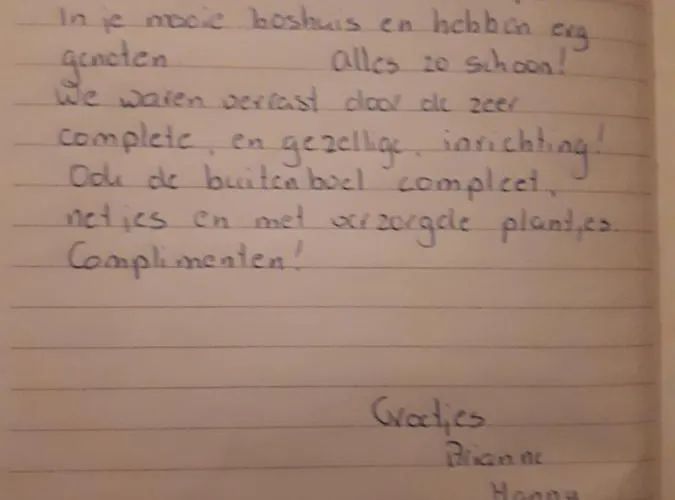 In je mooie boshuis en hebben erg
genoten alles zo schoon!
We waren verrast door de zeer
complete, en gezellige, inrichting!
Ook de buitenboel compleet,
netjes en met verzorgde plantjes.
Complimenten!
Groetjes
Hanny